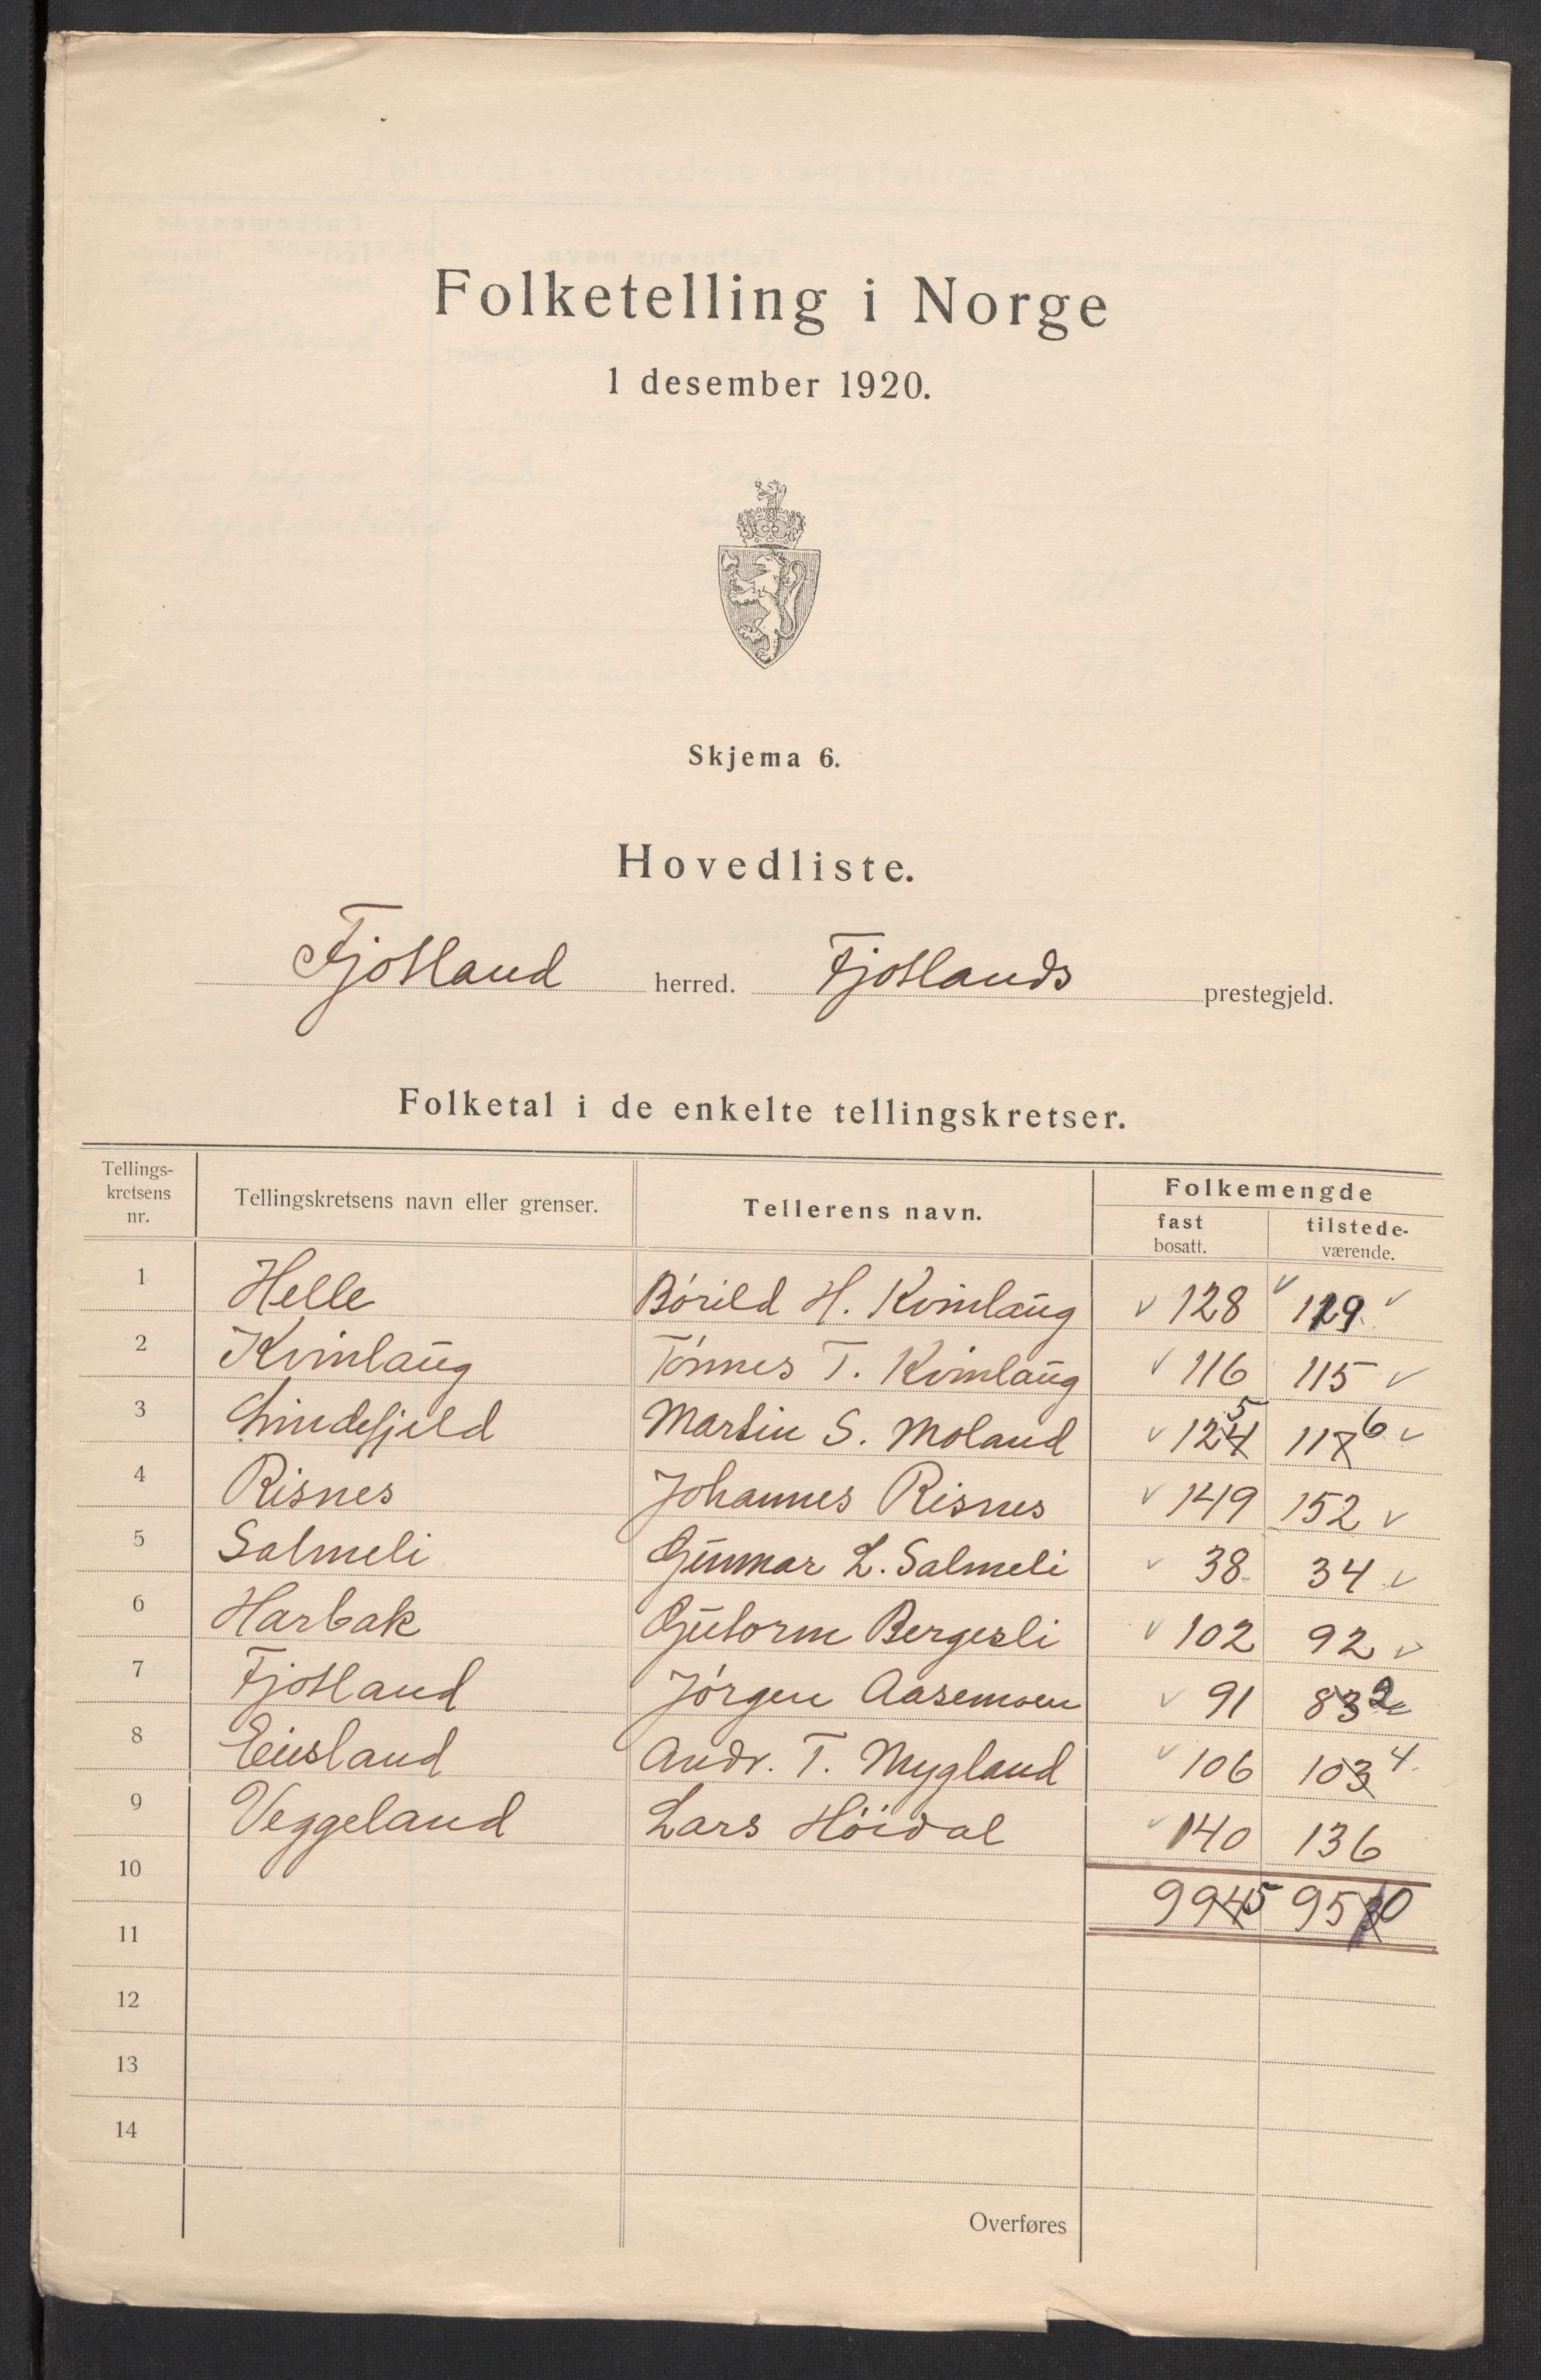 Folketelling i Norge
1 desember 1920.
Skjema 6.
Hovedliste.
Fjotland herred. Fjotlands prestegjeld.
Folketal i de enkelte tellingskretser.
Tellings-
kretsens
nr.
Tellingskretsens navn eller grenser.
Tellerens navn.
Folkemengde
fast
bosatt.
tilstede-
værende.
1 Helle Bórild H. Kvinlaug 128 119
2 Kvinlaug Tónnes T. Kvinlaug 116 115
3 Lindefjeld Martin S. Moland 125 116
4 Risnes Johannes Risnes 149 152
5 Salmeli Gunnar L. Salmeli 38 34
6 Harbak Gutorm Bergesli 102 92
7 Fjotland Jórgen Aasemoen 91 82
8 Eiesland Andr. T. Mygland 106 104
9 Veggeland Lars Höidal 140 136
10 995 950
11
12
13
14
Overføres